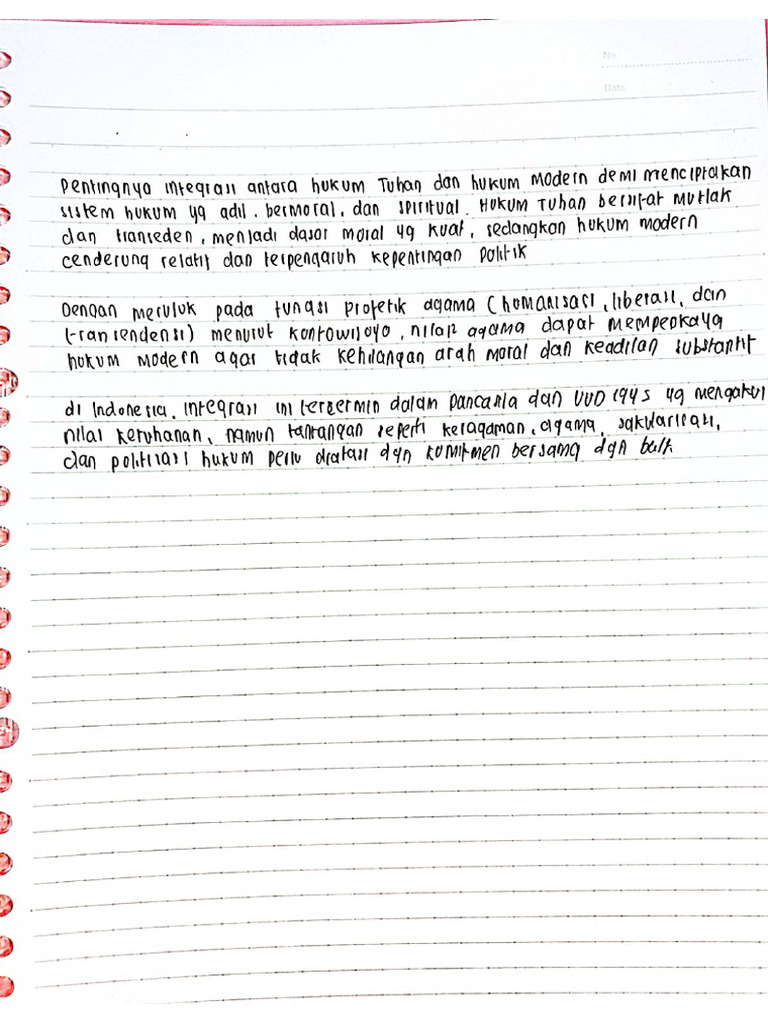 No.
Date
Pentingnya integrasi antara hukum Tuhan dan hukum Modern demi menciptakan
sistem hukum yg adil, bermoral, dan spiritual. Hukum Tuhan bersifat Mutlak
dan transeden, menjadi dasar moral yg kuat, sedangkan hukum modern
cenderung relatif dan terpengaruh kepentingan politik
Dengan merujuk pada fungsi profetik agama (humanisasi, liberasi, dan
transendensi) menurut kontowijoyo, nilai2 agama dapat memperkaya
hukum modern agar tidak kehilangan arah moral dan keadilan substantif
di Indonesia, integrasi ini tercermin dalam pancasila dan UUD 1945 yg mengakui
nilai ketuhanan, namun tantangan seperti keragaman, agama, sakularisasi,
dan politisasi hukum perlu diatasi dgn komitmen bersama dgn baik